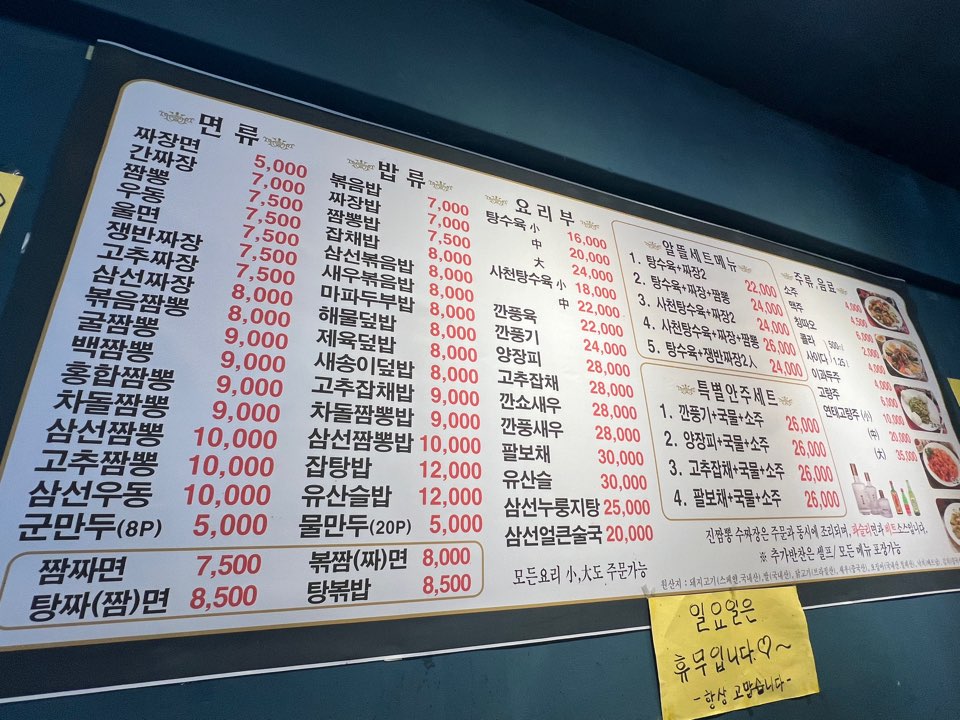 면 류
짜장면 5,000
간짜장 7,000
짬뽕 7,500
우동 7,500
울면 7,500
쟁반짜장 7,500
고추짜장 8,000
삼선짜장 8,000
볶음짬뽕 8,000
굴짬뽕 9,000
백짬뽕 9,000
홍합짬뽕 9,000
차돌짬뽕 9,000
삼선짬뽕 10,000
고추짬뽕 10,000
삼선우동 10,000
군만두(8P) 5,000
밥 류
볶음밥 7,000
짜장밥 7,000
짬뽕밥 7,500
잡채밥 8,000
삼선볶음밥 8,000
새우볶음밥 8,000
마파두부밥 8,000
해물덮밥 8,000
제육덮밥 8,000
새송이덮밥 8,000
고추잡채밥 9,000
차돌짬뽕밥 9,000
삼선짬뽕밥 10,000
잡탕밥 12,000
유산슬밥 12,000
물만두(20P) 5,000
짬짜면 7,500 볶짬(짜)면 8,000
탕짜(짬)면 8,500 탕볶밥 8,500
요리부
탕수육 小 16,000
中 20,000
大 24,000
사천탕수육 小 18,000
中 22,000
깐풍육 22,000
깐풍기 24,000
양장피 28,000
고추잡채 28,000
깐쇼새우 28,000
깐풍새우 28,000
팔보채 30,000
유산슬 30,000
삼선누룽지탕 25,000
삼선얼큰술국 20,000
모든요리 小,大도 주문가능
알뜰세트메뉴
1. 탕수육+짜장2 22,000
2. 탕수육+짜장+짬뽕 24,000
3. 사천탕수육+짜장2 24,000
4. 사천탕수육+짜장+짬뽕 26,000
5. 탕수육+쟁반짜장2人 24,000
특별안주세트
1. 깐풍기+국물+소주 26,000
2. 양장피+국물+소주 26,000
3. 고추잡채+국물+소주 26,000
4. 팔보채+국물+소주 26,000
주류,음료
소주 4,000
맥주 4,500
칭따오 6,000
콜라 500ml 2,000
사이다 1.25 4,000
이과두주 4,000
고량주 6,000
연태고량주 (小) 10,000
(中) 20,000
(大) 35,000
진짬뽕 수짜장은 주문과 동시에 조리되며, 파슬리면과 비트소스입니다.
※ 추가반찬은 셀프/ 모든 메뉴 포장가능
원산지 : 돼지고기(스페인,국내산), 쌀(국내산), 닭고기(브라질산),
일요일은
휴무입니다.♡~
-항상 고맙습니다-